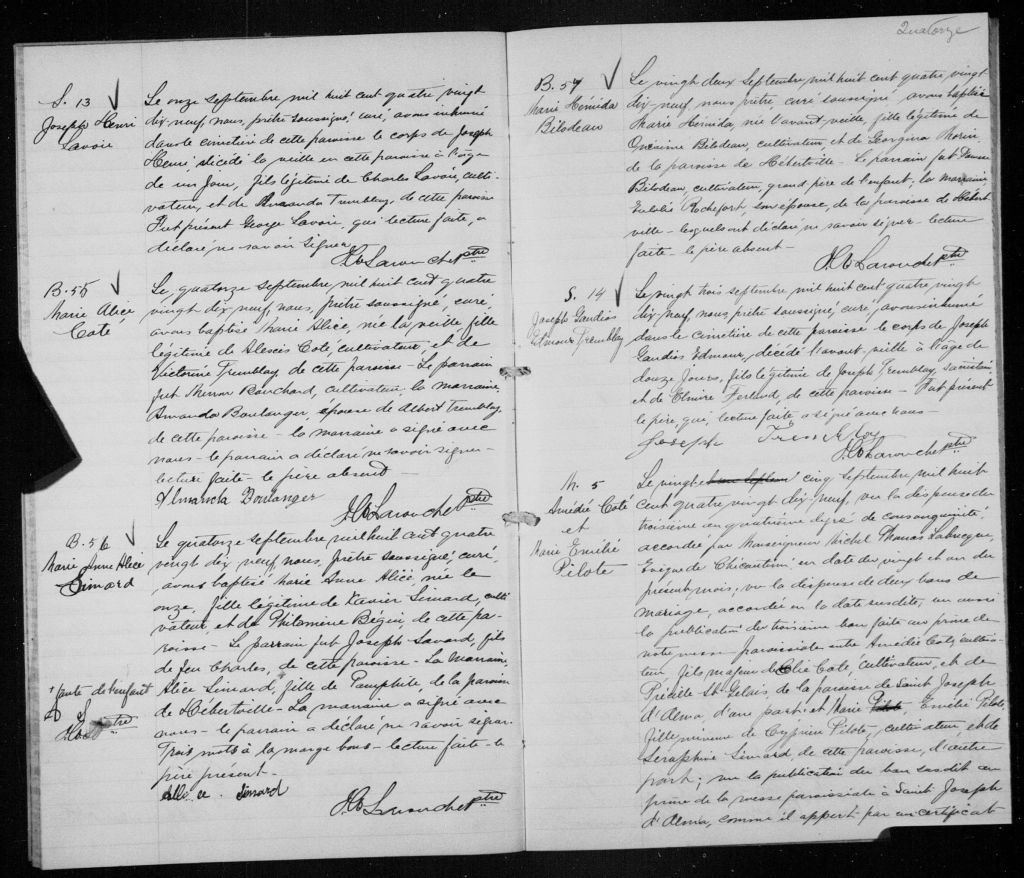 Quatorze
S. 13
Joseph Henri
Lavoie
Le onze septembre mil huit cent quatre vingt
dix-neuf, nous, prêtre soussigné, curé, avons inhumé
dans le cimetière de cette paroisse le corps de Joseph
Henri, décédé la veille en cette paroisse à l'âge
de un jour, fils légitime de Charles Lavoie, culti-
vateur, et de Amanda Tremblay, de cette paroisse
Fut présent George Lavoie, qui, lecture faite, a
déclaré ne savoir signer.
Larouche ptre
B. 55
Marie Alice
Coté
Le quatorze septembre mil huit cent quatre
vingt dix-neuf, nous, prêtre soussigné, curé,
avons baptisé Marie Alice, née la veille, fille
légitime de Alexis Coté, cultivateur et de
Victorine Tremblay de cette paroisse - Le parrain
fut Bouchard, cultivateur, la marraine,
Amanda Boulanger, épouse de Albert Tremblay,
de cette paroisse - la marraine a signé avec
nous - le parrain a déclaré ne savoir signer -
lecture faite - le père absent -
Almanda Boulanger
Larouche ptre
B. 56
Marie Anne Alice
Simard
Le quatorze septembre mil huit cent quatre
vingt dix neuf, nous, prêtre soussigné, curé,
avons baptisé Marie Anne Alice, née le
onze, fille légitime de Xavier Simard, culti
vateur, et de Philomène Bégin, de cette pa-
roisse - Le parrain fut Joseph Savard, fils
de feu Charles, de cette paroisse - La marraine,
Alice Simard, fille de Pamphile, de la paroisse
de Hébertville - La marraine a signé avec
nous - le parrain a déclaré ne savoir signer.
Trois mots à la marge bons - lecture faite - le
père présent -
+ tante de l'enfant
ptre
Alice Simard
Larouche ptre
B. 57
Marie Hémida
Bilodeau
Le vingt deux septembre mil huit cent quatre vingt
dix-neuf, nous prêtre, curé soussigné avons baptisé
Marie Hémida, née l'avant veille, fille légitime de
Onésime Bilodeau, cultivateur, et de Georgina Morin
de la paroisse de Hébertville - Le parrain fut
Bilodeau, cultivateur, grand père de l'enfant, la marraine,
Eulalie Rochefort, son épouse, de la paroisse de Hébert
ville - lesquels ont déclaré ne savoir signer - lecture
faite - le père absent -
Larouche ptre
S. 14
Joseph Gaudias
Edmour Tremblay
Le vingt trois septembre mil huit cent quatre vingt
dix-neuf, nous, prêtre soussigné, curé, avons inhumé
dans le cimetière de cette paroisse le corps de Joseph
Gaudias Edmour, décédé l'avant-veille à l'âge de
douze jours, fils légitime de Joseph Tremblay,
et de Elmire Ferland, de cette paroisse - Fut présent
le père, qui, lecture faite a signé avec nous -
Joseph Tremblay
Larouche ptre
M. 5
Amédée Coté
et
Marie Emélie
Pilote
Le vingt cinq septembre, mil huit
cent quatre vingt dix-neuf, vu la dispense du
troisième au quatrième degré de consanguinité
accordée par Monseigneur Michel Thomas Labrecque,
Evêque de Chicoutimi, en date du vingt et un du
présent mois; vu la dispense de deux bans de
mariage, accordée en la date susdite; vu aussi
la publication du troisième ban faite au prône de
notre messe paroissiale entre Amédée Coté, cultiva-
teur, fils majeur de Elie Coté, cultivateur, et de
Prexède St-Gelais, de la paroisse de Saint Joseph
d'Alma, d'une part; et Marie Emélie Pilote,
fille mineure de Cyprien Pilote, cultivateur, et de
Séraphine Simard, de cette paroisse, d'autre
part; vu la publication du ban susdit au
prône de la messe paroissiale à Saint Joseph
d'Alma, comme il appert par un certificat